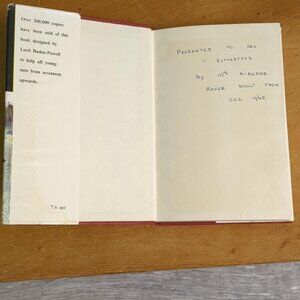 Over 200,000 copies
have been sold of this
book designed by
Lord Baden-Powell
to help all young
men from seventeen
upwards.
7/6 net
PRESENTED TO REV.
RUTHERFORD
BY 10th
ROVER SCOUT CREW
DEC